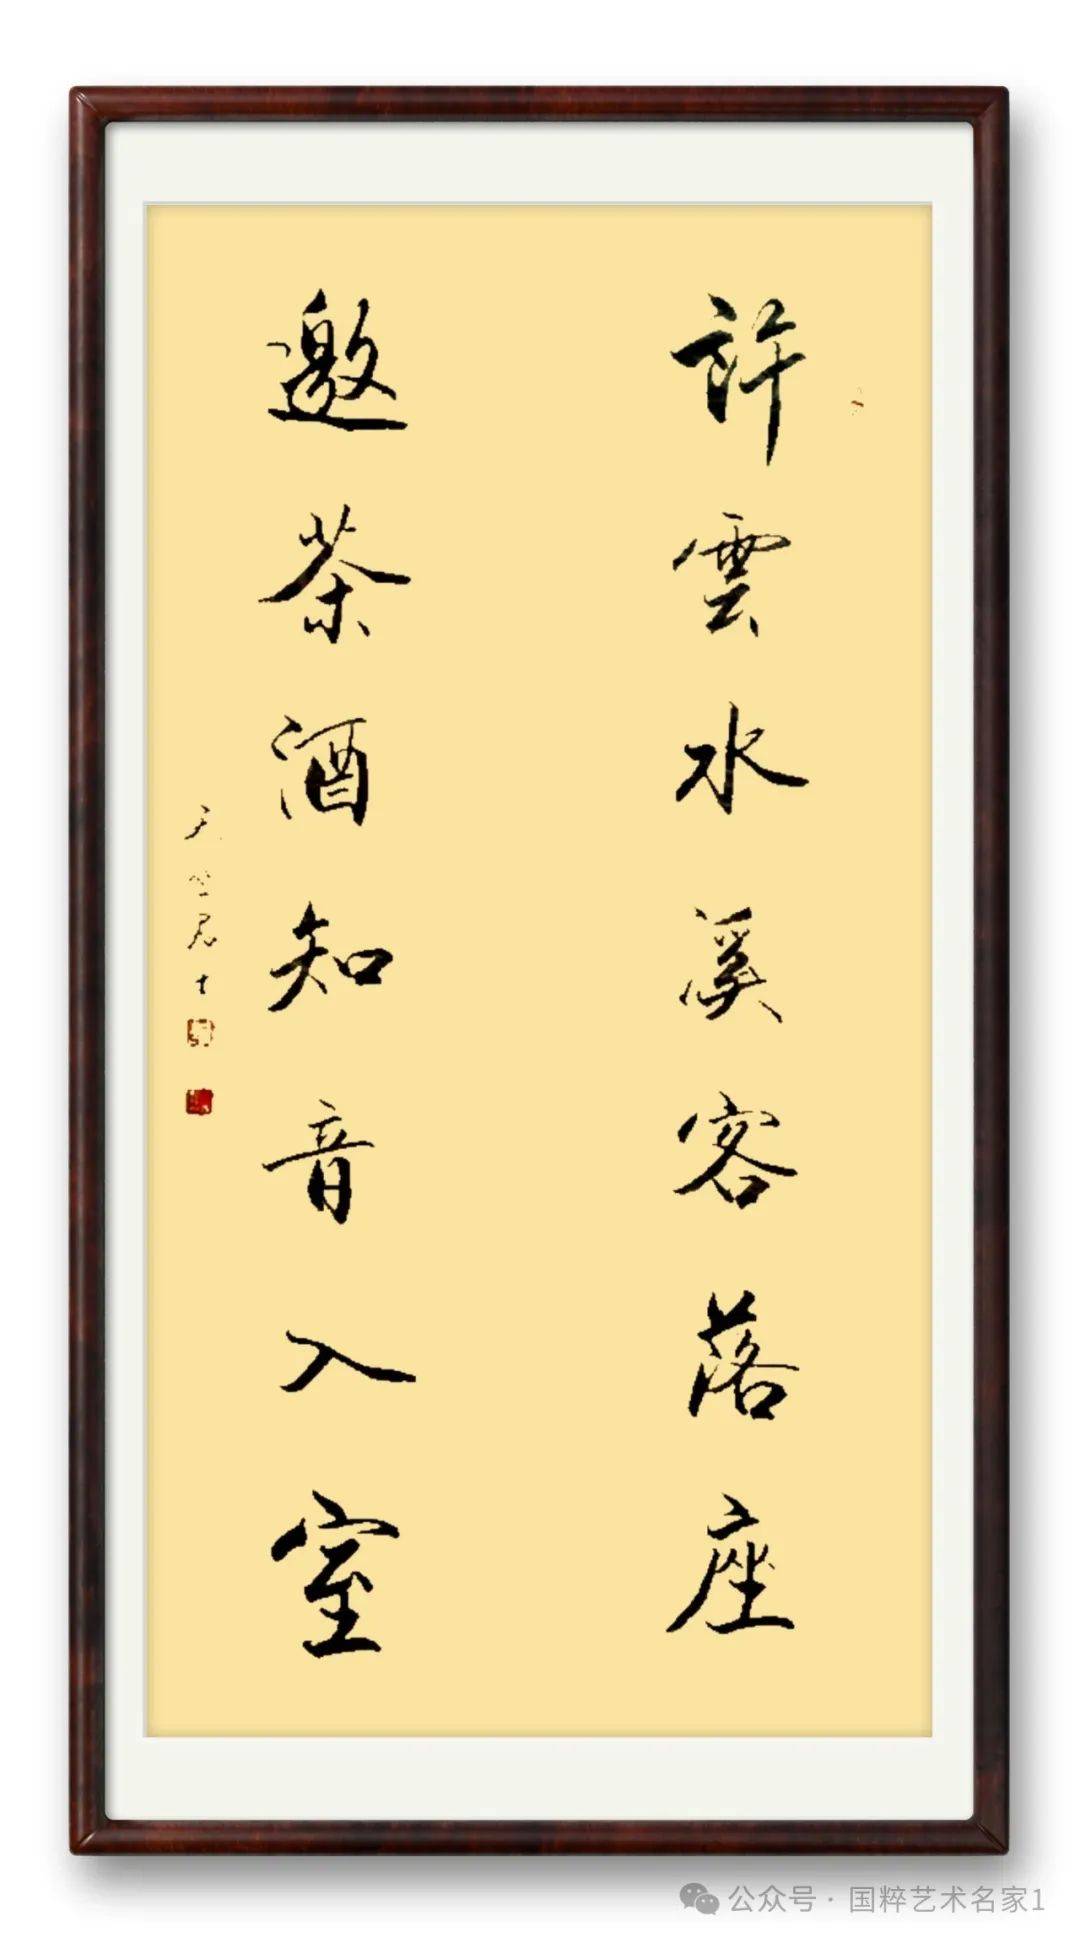 許雲水溪客落座
邀茶酒知音入室
公众号 · 国粹艺术名家1